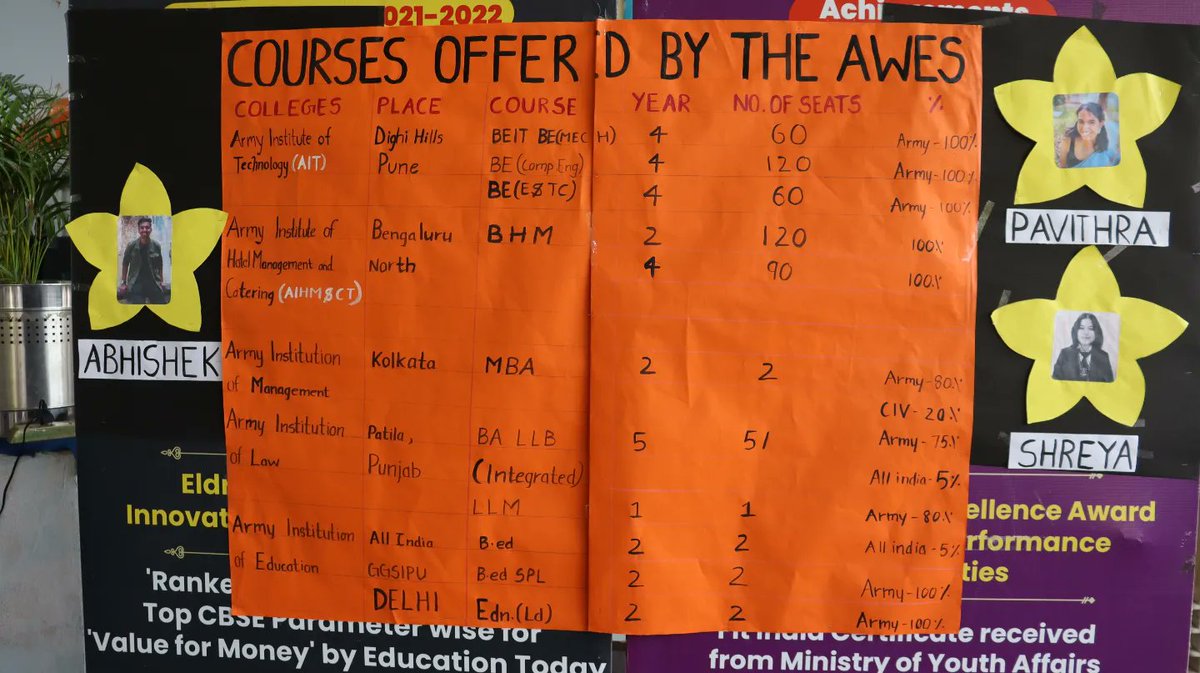 021-2022
Achievements
COURSES OFFERED BY THE AWES
COLLEGES PLACE COURSE YEAR NO. OF SEATS %
Army Institute of Dighi Hills BEIT BE(MECH) 4 60 Army-100%
Technology (AIT) Pune BE (Comp Eng) 4 120 Army-100%
BE(E&TC) 4 60 Army-100%
Army Institute of Bengaluru BHM 2 120 100%
Hotel Management and North 4 90 100%
Catering (AIHM&CT)
Army Institution Kolkata MBA 2 2 Army-80%
of Management CIV-20%
Army Institution Patila, BA LLB 5 51 Army-75%
of Law Punjab (Integrated) All india-5%
LLM 1 1 Army-80%
Army Institution All India B.ed 2 2 All india-5%
of Education GGSIPU B.ed SPL 2 2 Army-100%
DELHI Edn.(Ld) 2 2 Army-100%
ABHISHEK
PAVITHRA
SHREYA
Eldr
Innovat
'Ranke
Top CBSE Parameter wise for
'Value for Money' by Education Today
ellence Award
erformance
ties
Fit India Certificate received
from Ministry of Youth Affairs